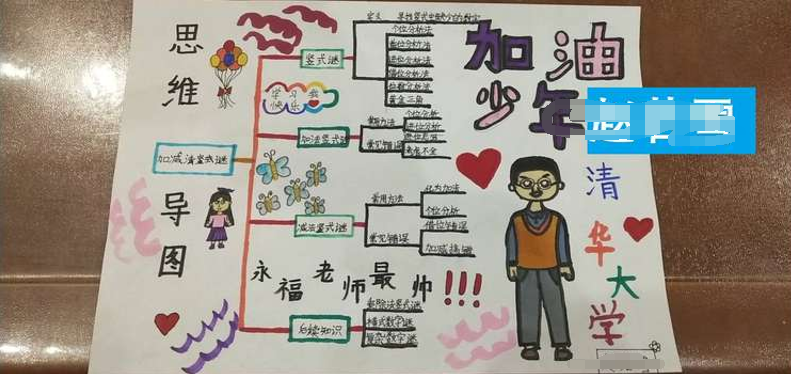 思维
导图
加减法竖式谜
竖式谜
定义
个位分析法
首位分析法
进位分析法
借位分析法
位数分析法
黄金三角
学习我
快乐
加法竖式谜
常用方法
个位分析
进位分析
常见错误
考虑不全
减法竖式谜
常用方法
化为加法
个位分析
常见错误
借位错误
加减
永福老师最帅!!!
后续知识
乘除法竖式谜
横式数字谜
复杂数字谜
加油
少年
清华大学